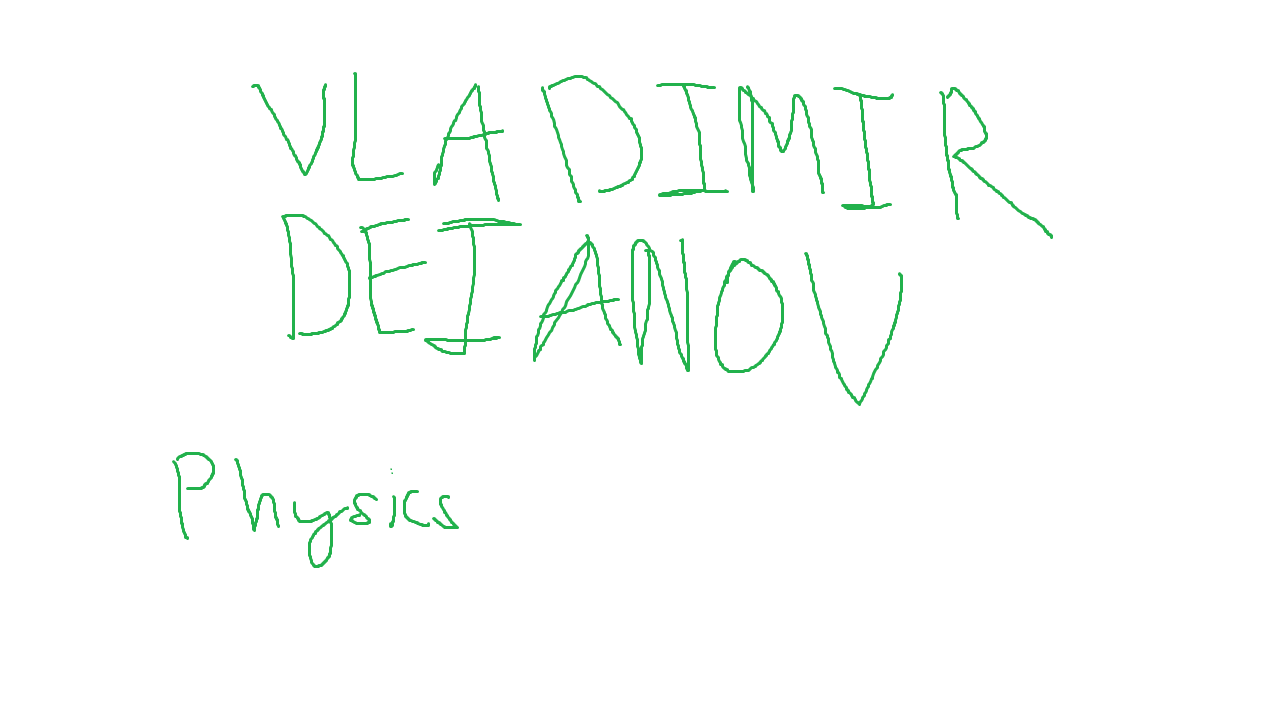 VLADIMIR
DEIANOV
Physics